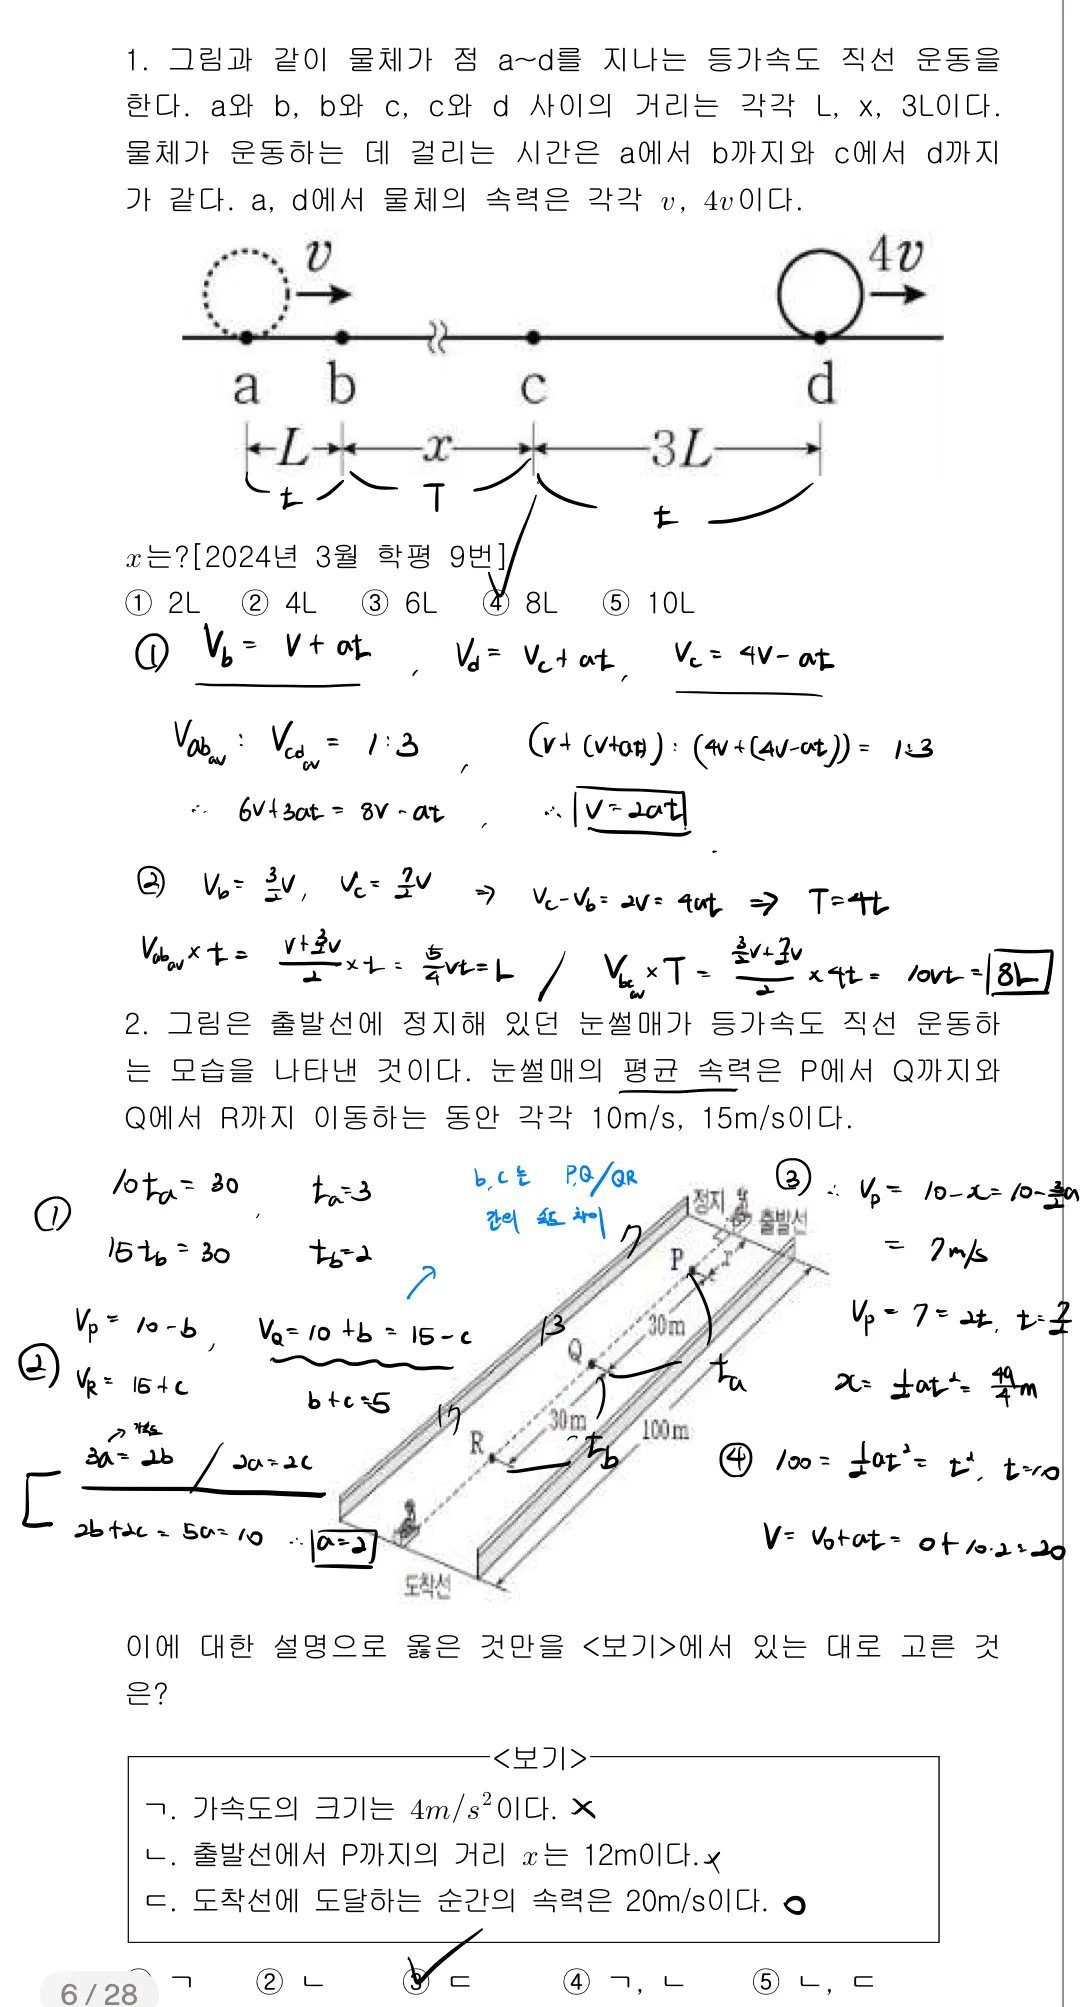 1. 그림과 같이 물체가 점 a~d를 지나는 등가속도 직선 운동을
한다. a와 b, b와 c, c와 d 사이의 거리는 각각 L, x, 3L이다.
물체가 운동하는 데 걸리는 시간은 a에서 b까지와 c에서 d까지
가 같다. a, d에서 물체의 속력은 각각 v, 4v이다.
v 4v
a b c d
L x 3L
t T t
x는?[2024년 3월 학평 9번]
① 2L ② 4L ③ 6L ④ 8L ⑤ 10L
① Vb = v + at , Vd = Vc + at , Vc = 4v - at
Vab av : Vcd av = 1:3 , (v + (v+at)) : (4v + (4v-at)) = 1:3
∴ 6v + 3at = 8v - at , ∴ v = 2at
② Vb = 3/2 v, Vc = 7/2 v ⇒ Vc - Vb = 2v = 4at ⇒ T = 4t
Vab av × t = (v + 3/2 v)/2 × t = 5/4 vt = L / Vbc av × T = (3/2 v + 7/2 v)/2 × 4t = 10vt = 8L
2. 그림은 출발선에 정지해 있던 눈썰매가 등가속도 직선 운동하
는 모습을 나타낸 것이다. 눈썰매의 평균 속력은 P에서 Q까지와
Q에서 R까지 이동하는 동안 각각 10m/s, 15m/s이다.
① 10ta = 30 , ta = 3
15tb = 30 tb = 2
② Vp = 10 - b , VQ = 10 + b = 15 - c
VR = 15 + c b + c = 5
가속도
3a = 2b / 2a = 2c
2b + 2c = 5a = 10 ∴ a = 2
b, c는 P,Q/QR
간의 속도 차이
정지 출발선
7 P x
13 30m ta
Q
17 30m tb
R 100m
도착선
③ ∴ Vp = 10 - x = 10 - 3/2 a
= 7 m/s
Vp = 7 = 2t, t = 7/2
x = 1/2 at² = 49/4 m
④ 100 = 1/2 at² = t², t = 10
V = V₀ + at = 0 + 10·2 = 20
이에 대한 설명으로 옳은 것만을 <보기>에서 있는 대로 고른 것
은?
<보기>
ㄱ. 가속도의 크기는 4m/s²이다. ×
ㄴ. 출발선에서 P까지의 거리 x는 12m이다. ×
ㄷ. 도착선에 도달하는 순간의 속력은 20m/s이다. O
ㄱ ② ㄴ ③ ㄷ ④ ㄱ, ㄴ ⑤ ㄴ, ㄷ
6 / 28